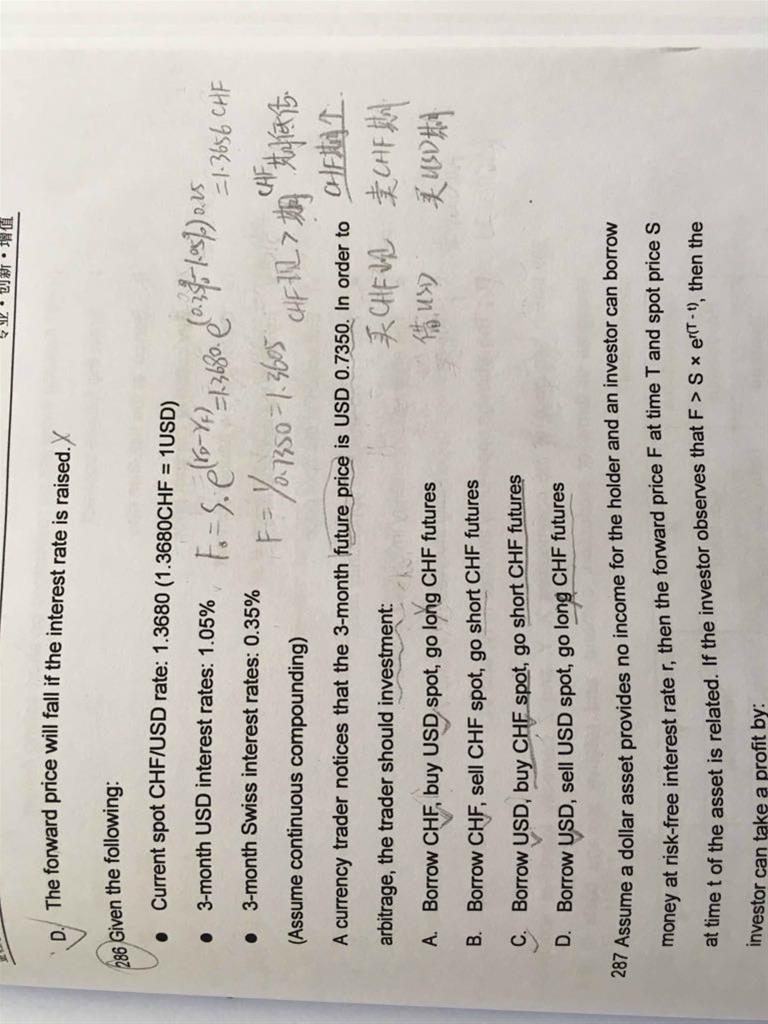 专业·创新·增值
D. The forward price will fall if the interest rate is raised. X
286 Given the following:
● Current spot CHF/USD rate: 1.3680 (1.3680CHF = 1USD)
● 3-month USD interest rates: 1.05%
● 3-month Swiss interest rates: 0.35%
F₀ = S·e^(r_D-r_F) = 1.3680·e^(0.35%-1.05%)0.25
=1.3656 CHF
F = 1/0.7350 = 1.3605
CHF现 > 期
CHF期低估
(Assume continuous compounding)
A currency trader notices that the 3-month future price is USD 0.7350. In order to
CHF期个
arbitrage, the trader should investment:
买CHF现 卖CHF期
借USD 买USD期
A. Borrow CHF, buy USD spot, go long CHF futures
B. Borrow CHF, sell CHF spot, go short CHF futures
C. Borrow USD, buy CHF spot, go short CHF futures
D. Borrow USD, sell USD spot, go long CHF futures
287 Assume a dollar asset provides no income for the holder and an investor can borrow
money at risk-free interest rate r, then the forward price F at time T and spot price S
at time t of the asset is related. If the investor observes that F > S × e^r(T - t), then the
investor can take a profit by: